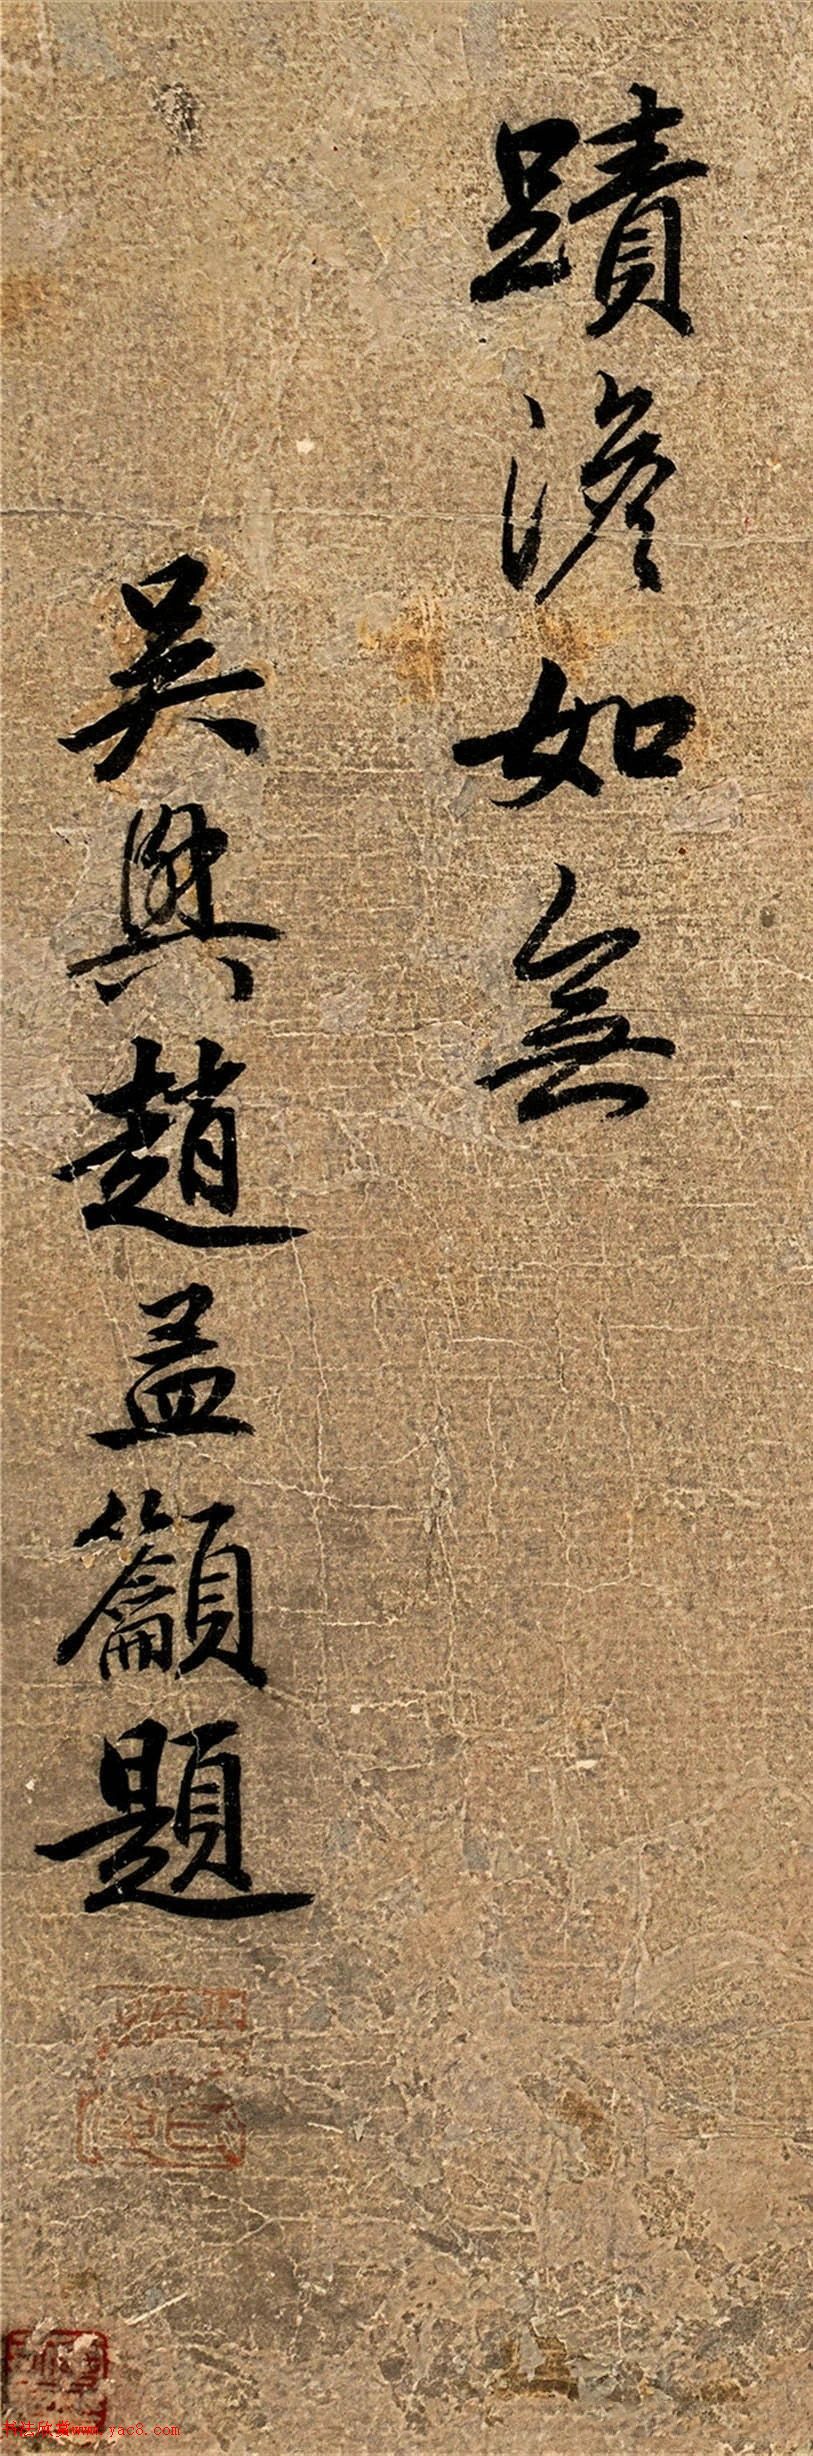 蹟澹如無
吳興趙孟籲題
书法欣赏www.yac8.com